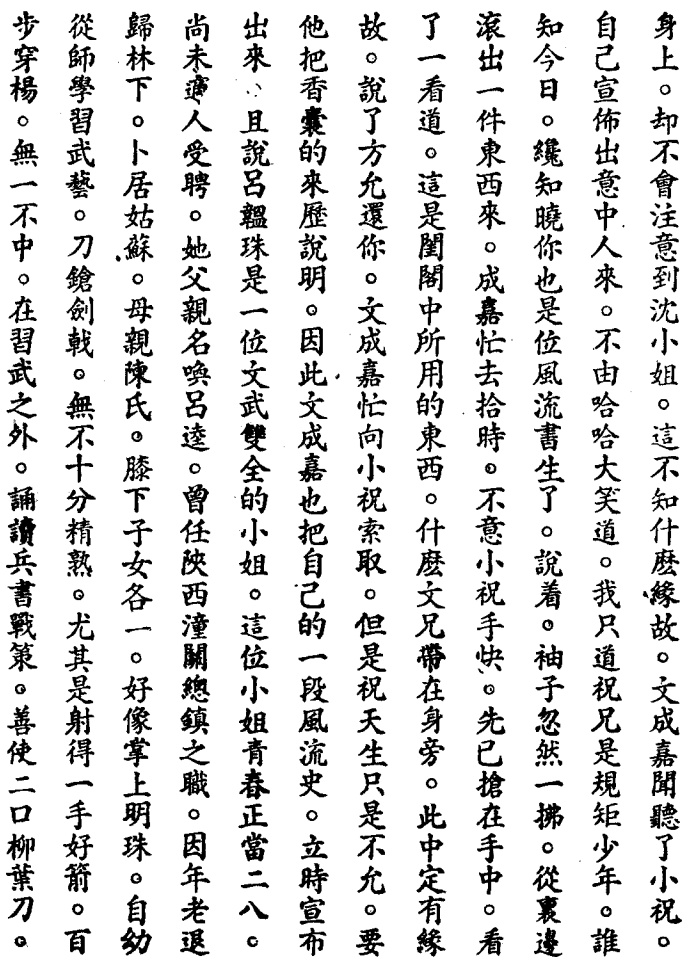 身上。却不會注意到沈小姐。這不知什麽緣故。文成嘉聞聽了小祝。
自己宣佈出意中人來。不由哈哈大笑道。我只道祝兄是規矩少年。誰
知今日。纔知曉你也是位風流書生了。說着。袖子忽然一拂。從裏邊
滾出一件東西來。成嘉忙去拾時。不意小祝手快。先已搶在手中。看
了一看道。這是閨閣中所用的東西。什麽文兄帶在身旁。此中定有緣
故。說了方允還你。文成嘉忙向小祝索取。但是祝天生只是不允。要
他把香囊的來歷說明。因此文成嘉也把自己的一段風流史。立時宣布
出來。且說呂韞珠是一位文武雙全的小姐。這位小姐青春正當二八。
尚未適人受聘。她父親名喚呂逵。曾任陝西潼關總鎮之職。因年老退
歸林下。卜居姑蘇。母親陳氏。膝下子女各一。好像掌上明珠。自幼
從師學習武藝。刀鎗劍戟。無不十分精熟。尤其是射得一手好箭。百
步穿楊。無一不中。在習武之外。誦讀兵書戰策。善使二口柳葉刀。